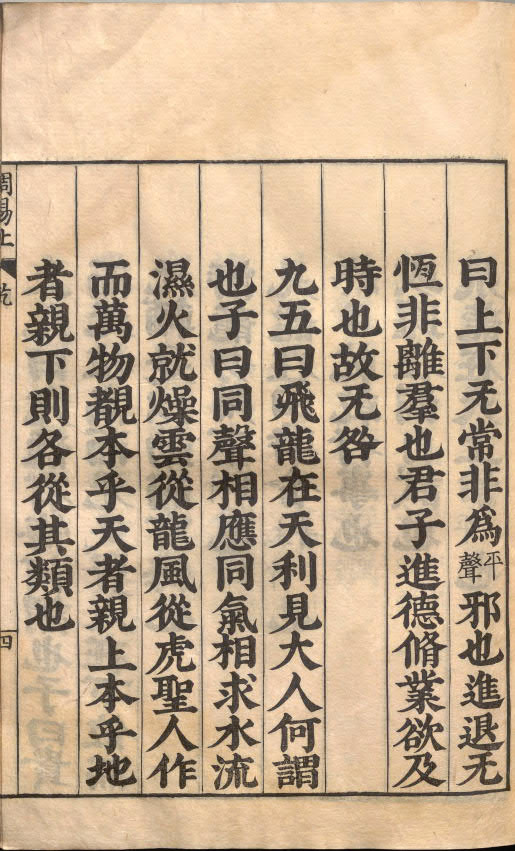 曰上下无常非爲平聲邪也進退无
恆非離羣也君子進德脩業欲及
時也故无咎
九五曰飛龍在天利見大人何謂
也子曰同聲相應同氣相求水流
濕火就燥雲從龍風從虎聖人作
而萬物覩本乎天者親上本乎地
者親下則各從其類也
周易上
乾
四